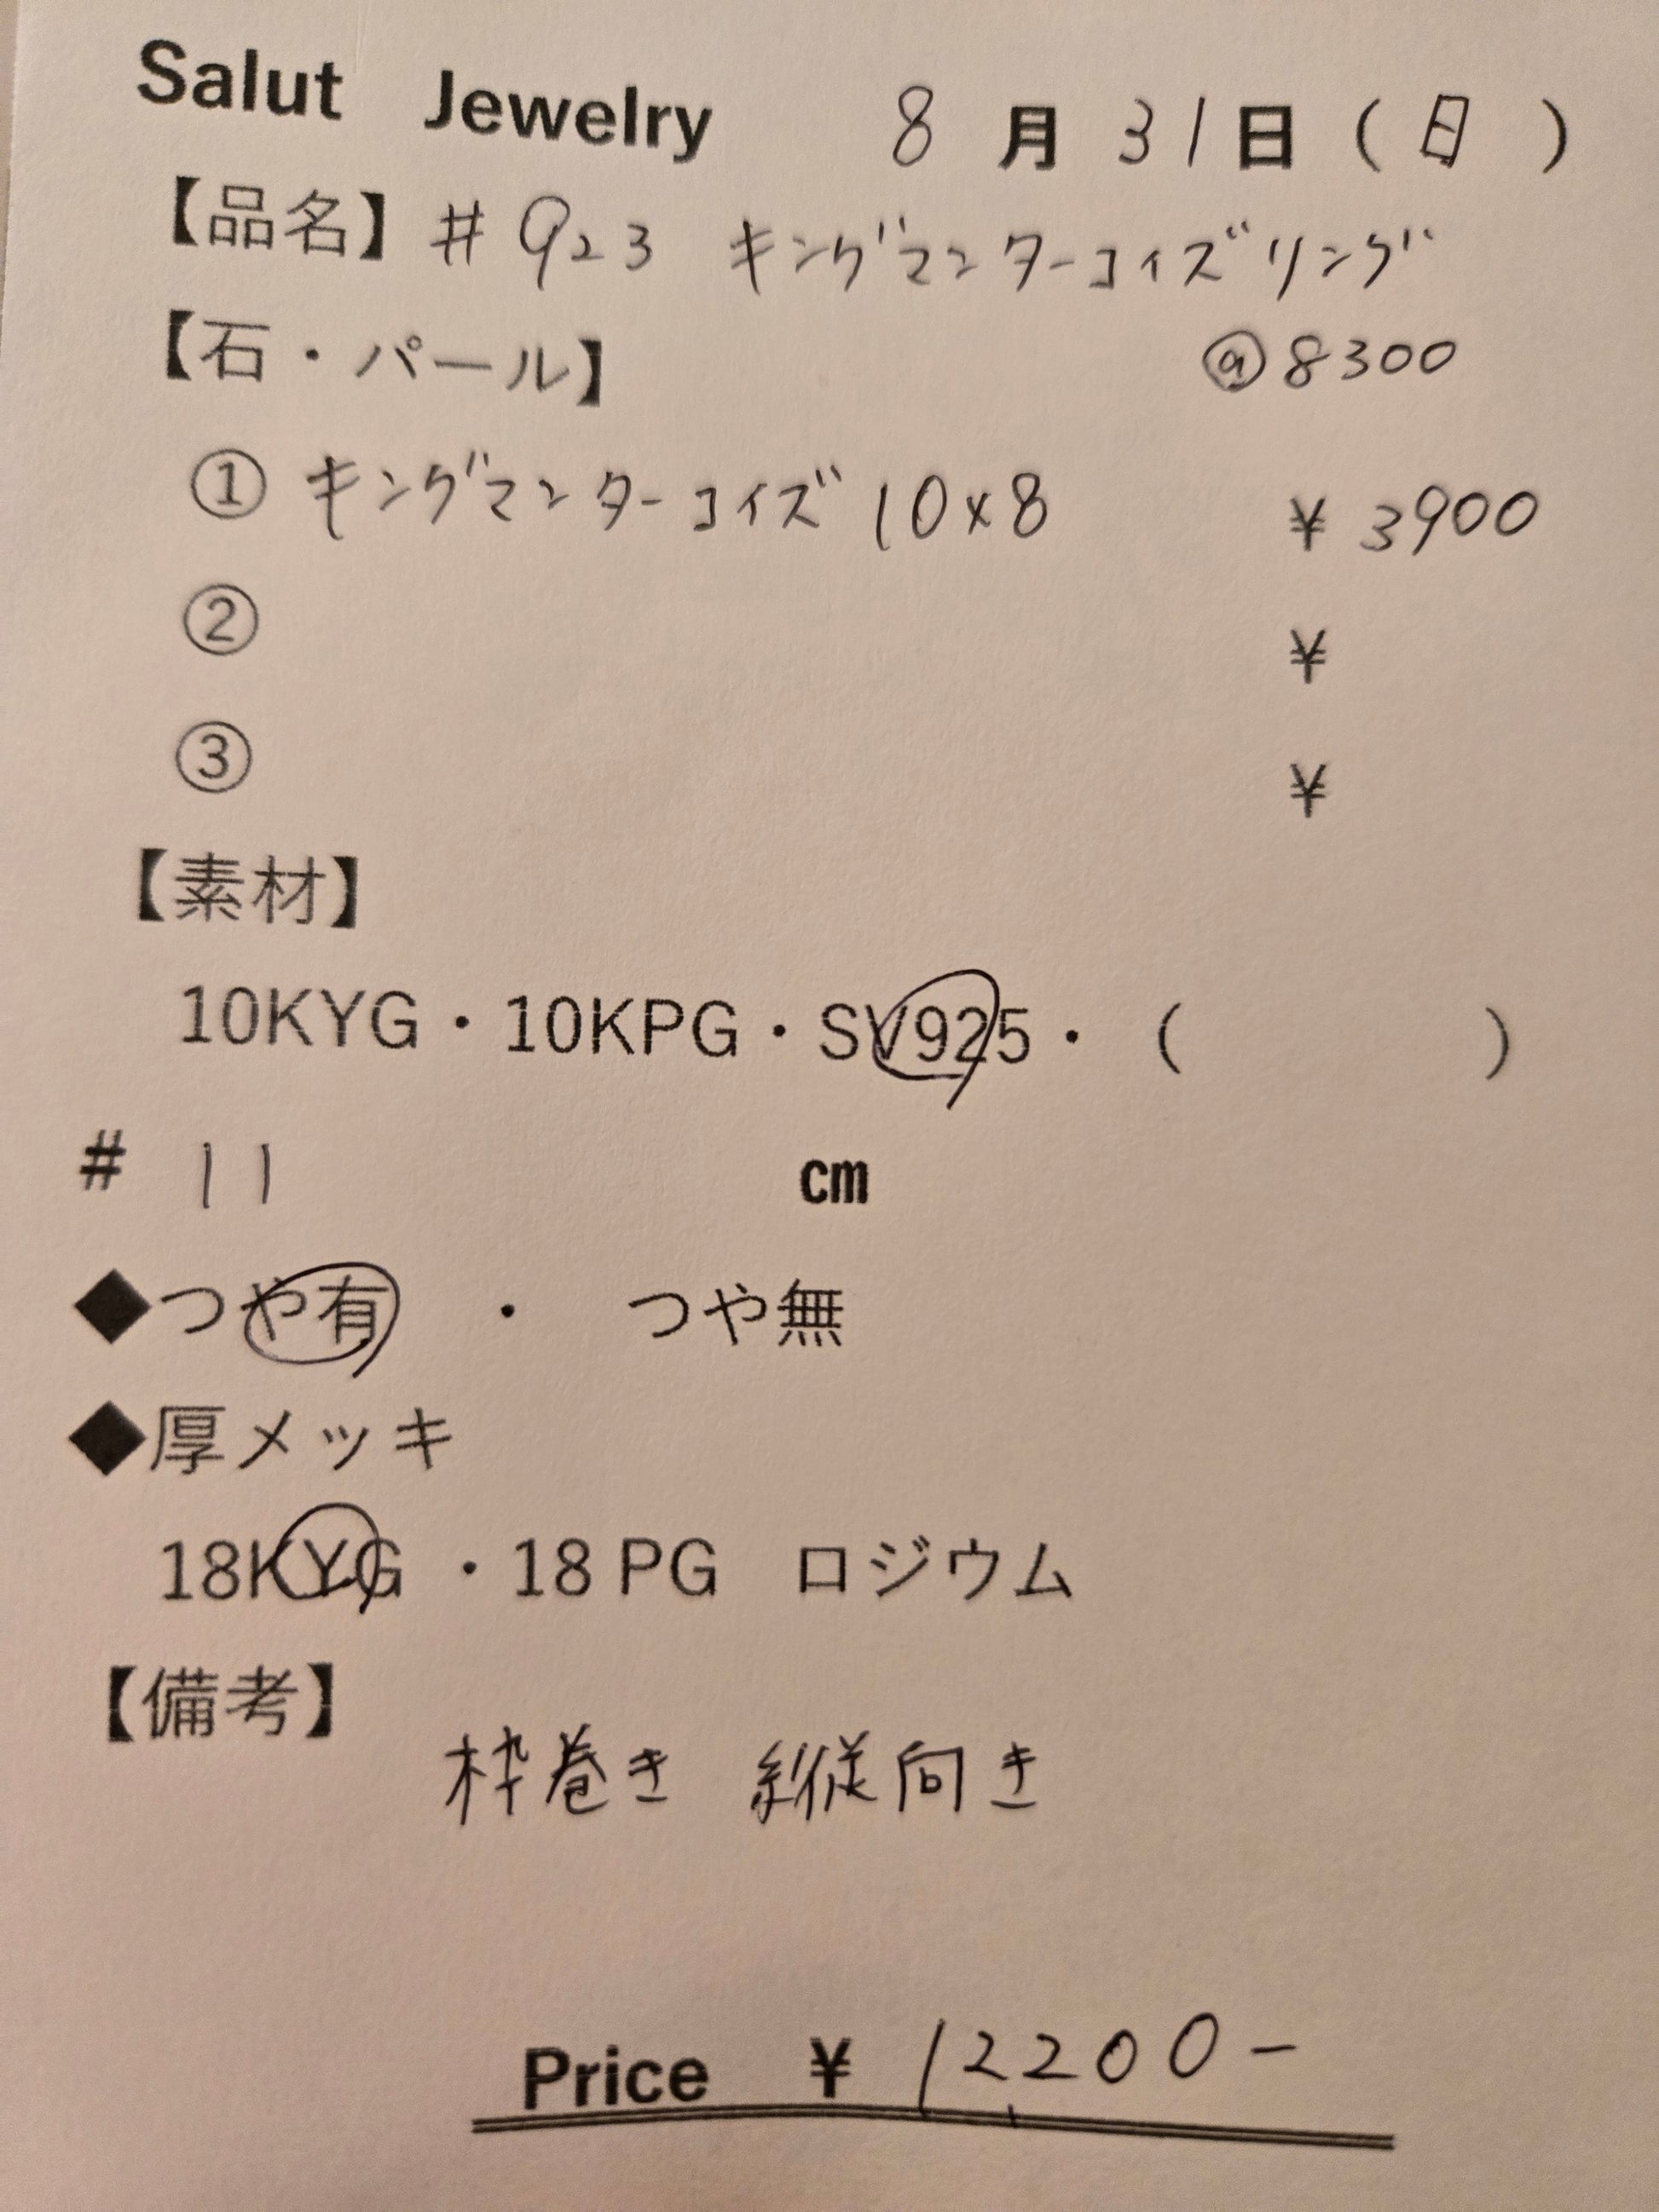 Salut Jewelry 8月31日(日)
【品名】#923 キングマンターコイズリング
【石・パール】 @8300
① キングマンターコイズ 10×8 ¥3900
② ¥
③ ¥
【素材】
10KYG・10KPG・SV925・( )
# 11 cm
◆つや有 ・ つや無
◆厚メッキ
18KYG ・18 PG ロジウム
【備考】
枠巻き 縦向き
Price ¥ 12,200-